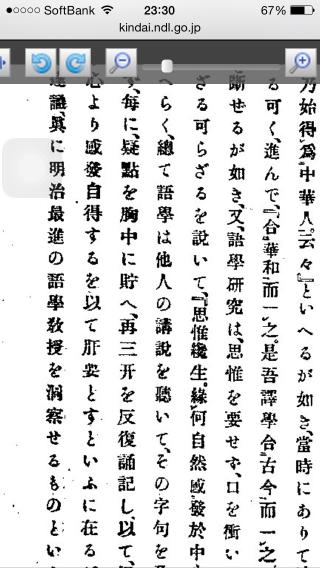 SoftBank 23:30 67%
kindai.ndl.go.jp
乃始得爲中華人云々』といへるが如き、當時にありて
る可く、進んで、『合華和而一之。是吾譯學合古今而一之
斷せるが如き、又、語學研究は、思惟を要せず、口を衝い
ざる可らざるを說いて、『思惟纔生。緣何自然感發於中
へらく、總て語學は他人の講說を聽いて、その字句を
々、每に、疑點を胸中に貯へ、再三开を反復誦記し、以て、
心より感發自得するを以て肝要とすといふに在る
建議、眞に明治最進の語學敎授を洞察せるものとい